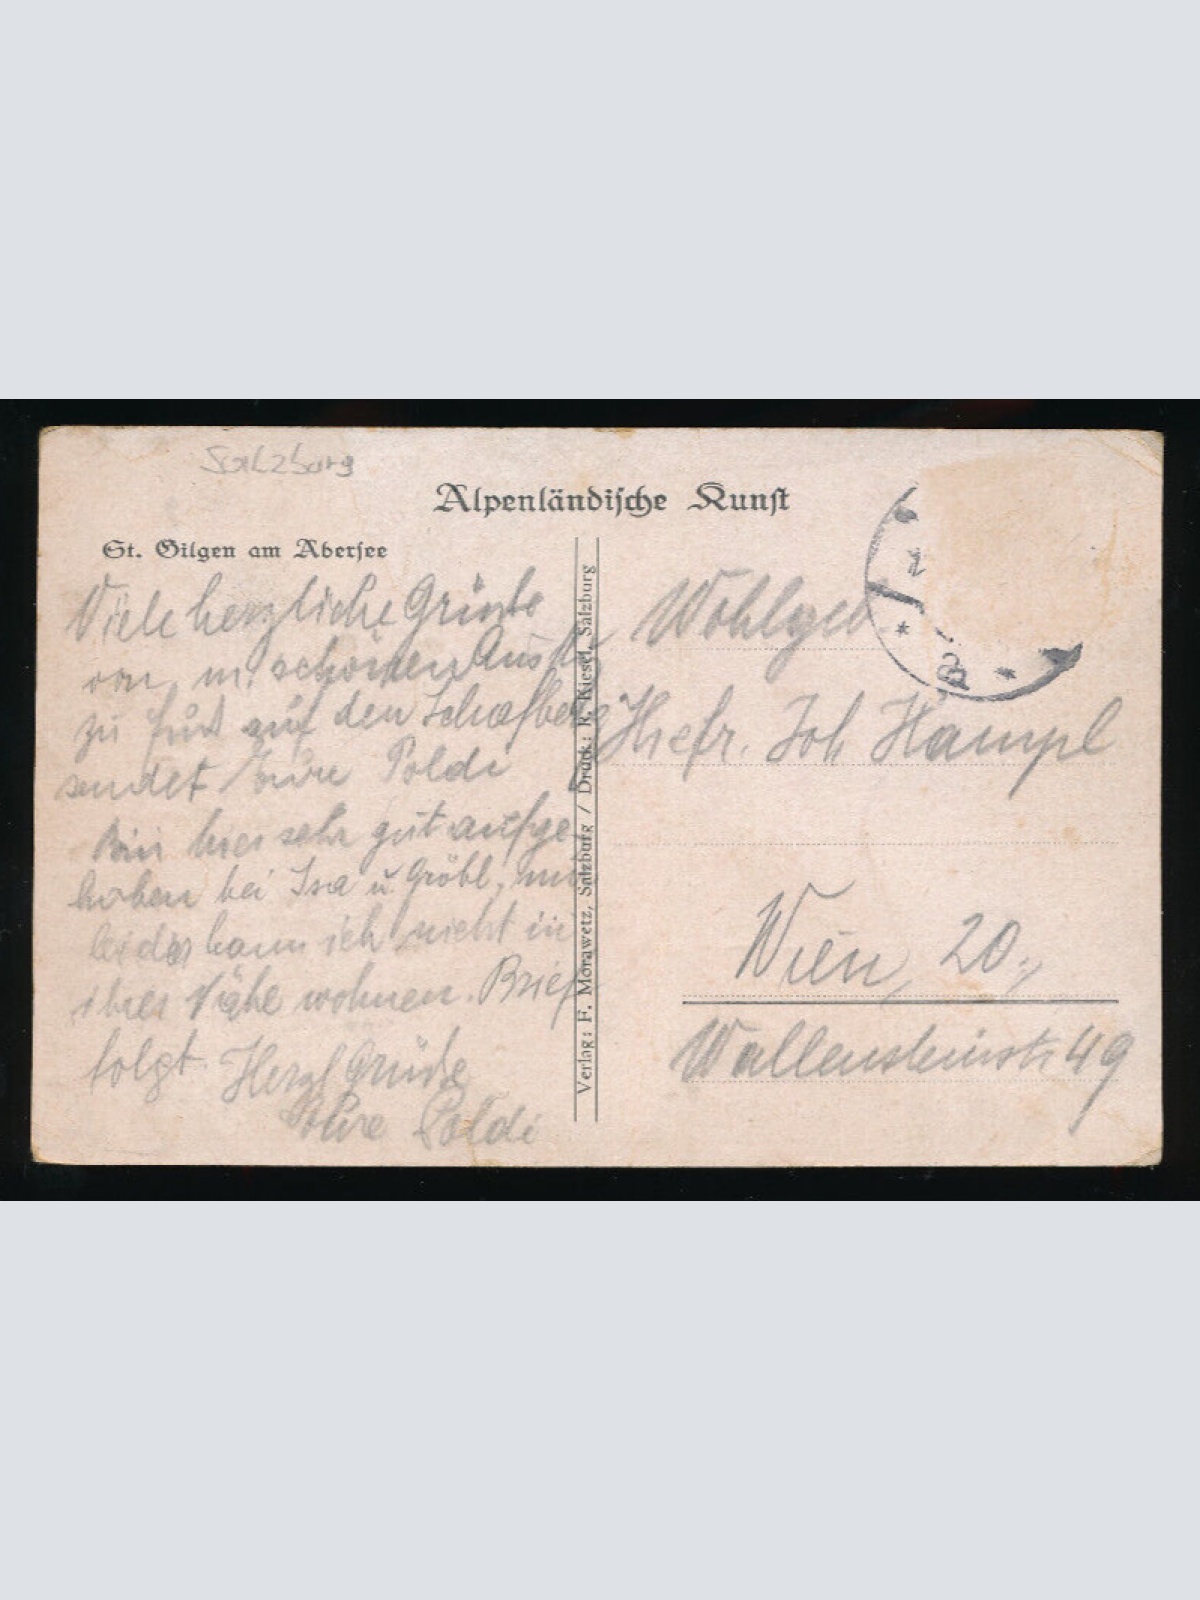 Salzburg
Alpenländische Kunst
St. Gilgen am Abersee
Viele herzliche Grüße
von m. schönen Ausflug
zu Fuß auf den Schafberg
sendet Eure Poldi
Bin hier sehr gut aufge-
hoben bei Isa u. Gröbl, nur
leider kann ich nicht in
ihrer Nähe wohnen. Brief
folgt. Herzl. Grüße
Eure Poldi
Verlag: F. Morawetz, Salzburg / Druck: R. Kiesel, Salzburg
Wohlgeb
Joh Hampl
Wien, 20.,
Wallensteinstr 49